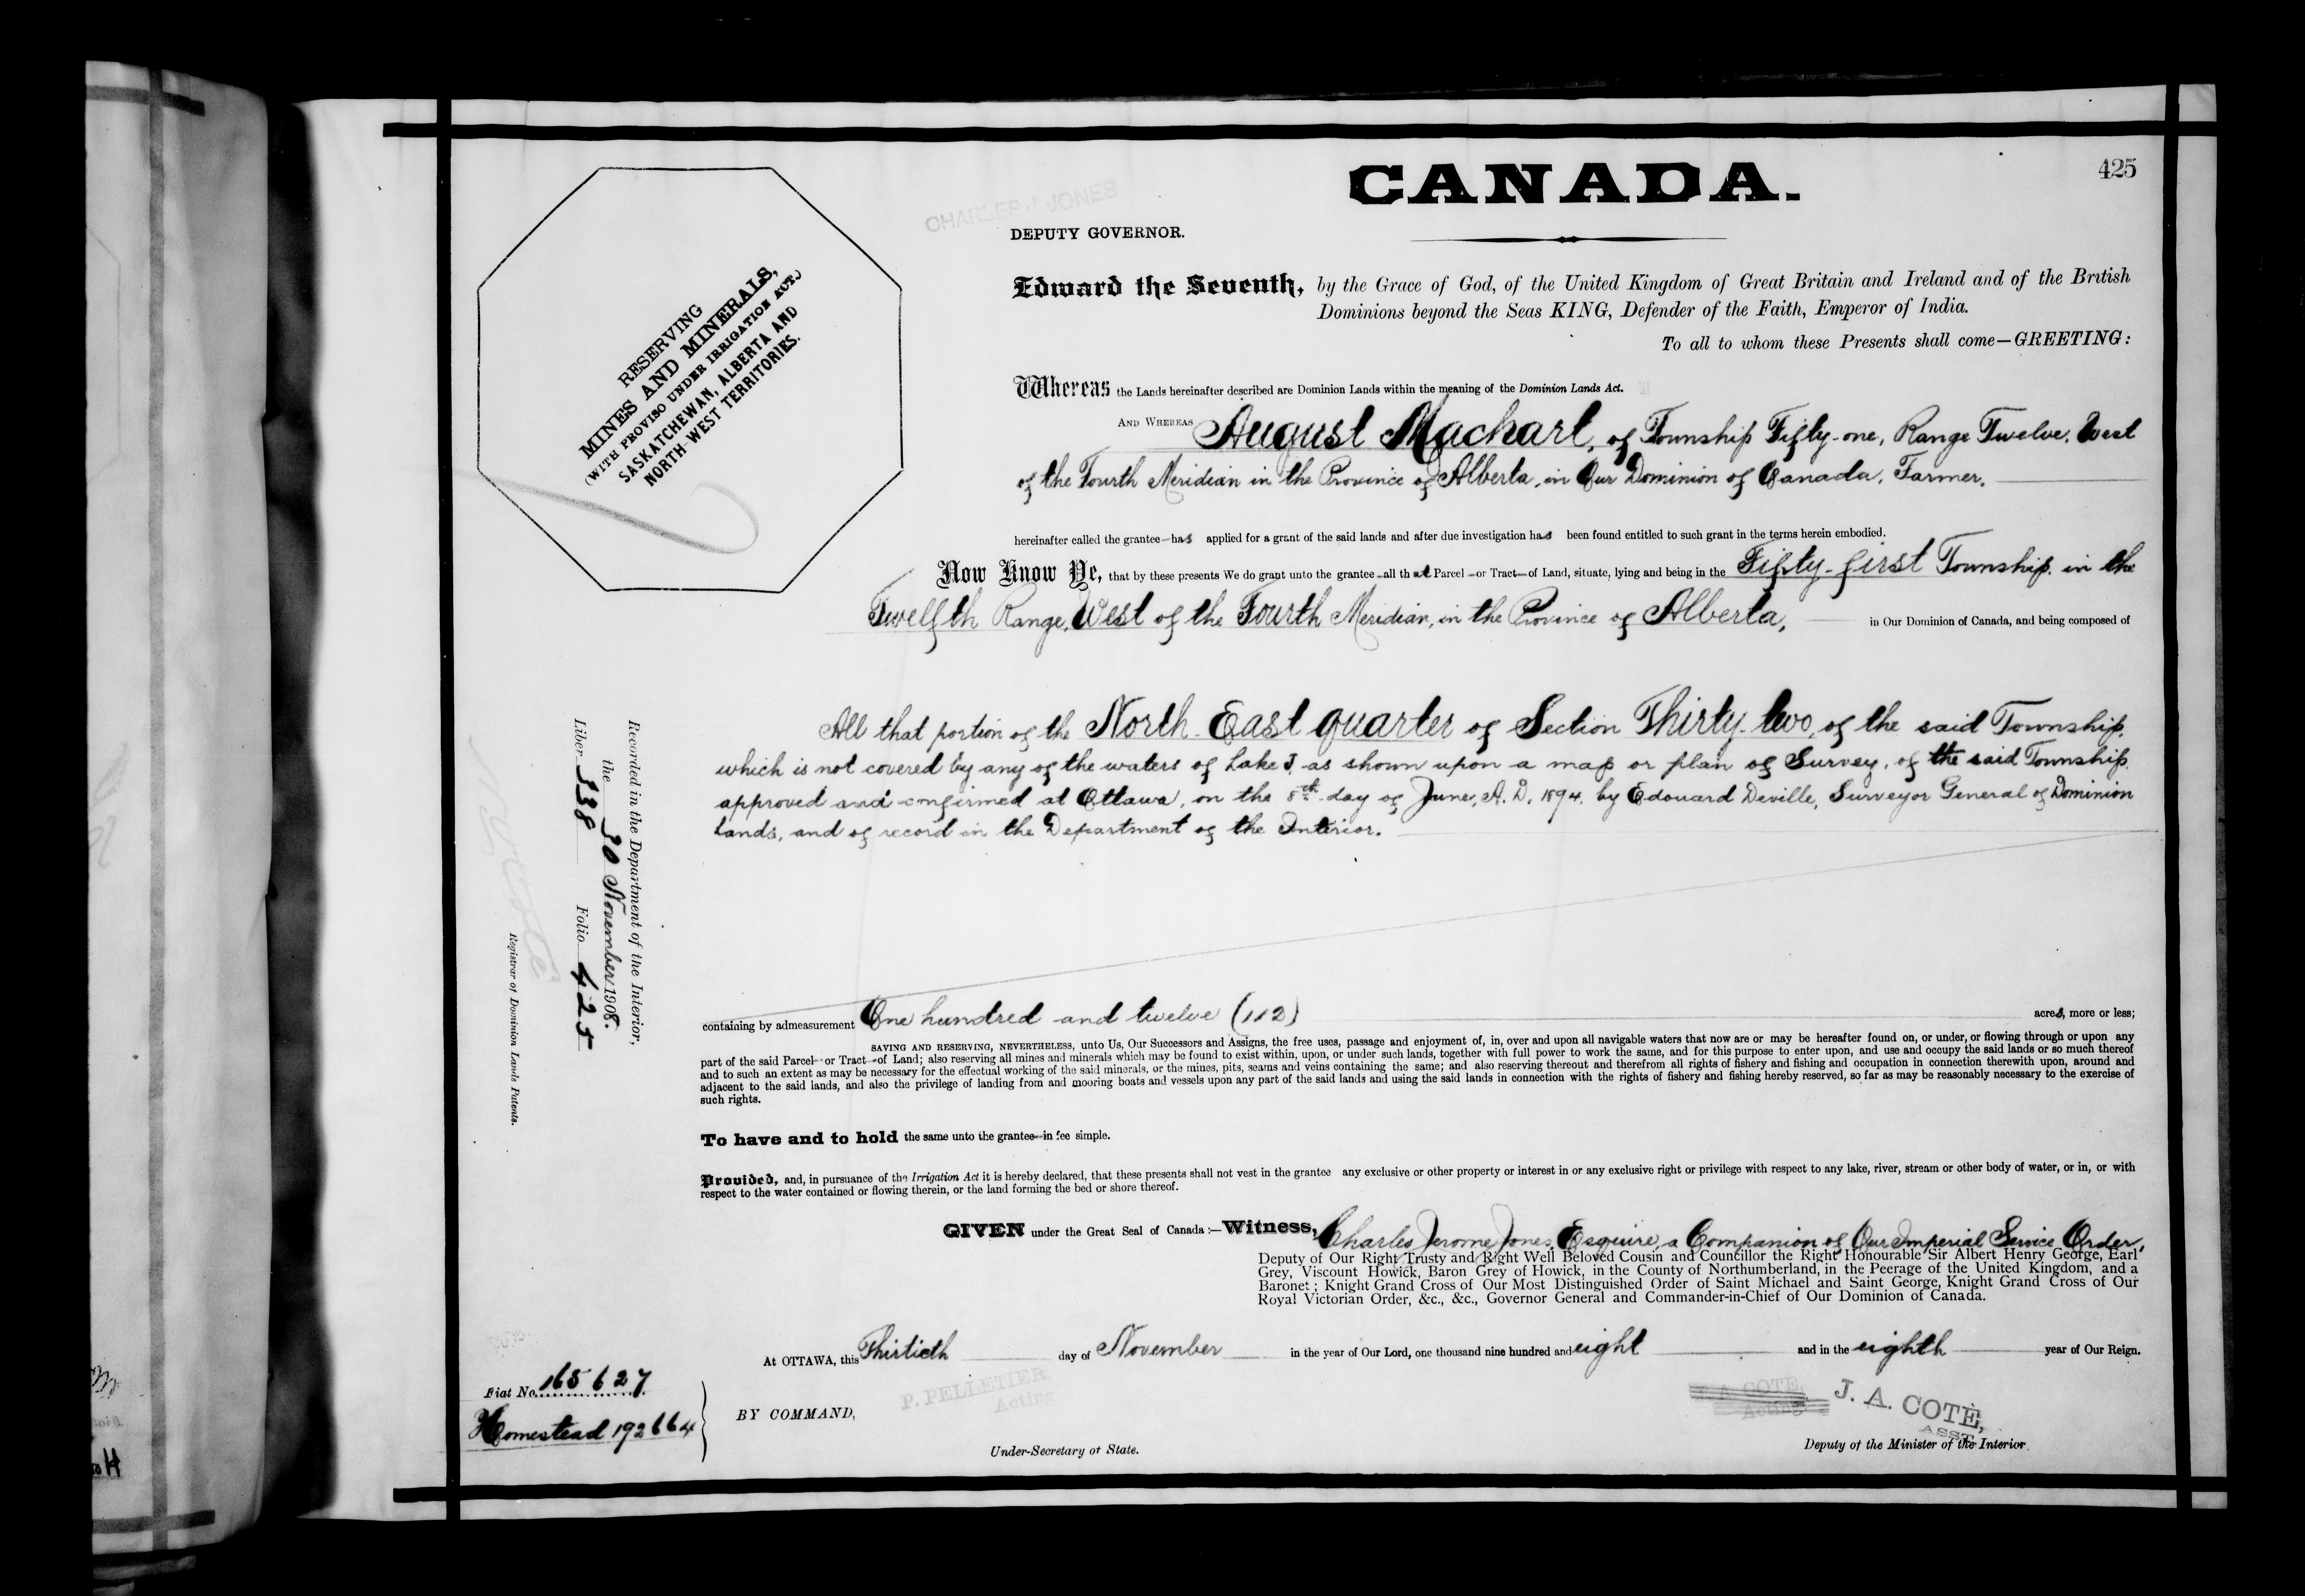 425
CANADA.
CHARLES J. JONES
DEPUTY GOVERNOR.
RESERVING
MINES AND MINERALS,
(WITH PROVISO UNDER IRRIGATION ACT.)
SASKATCHEWAN, ALBERTA AND
NORTH-WEST TERRITORIES.
Edward the Seventh, by the Grace of God, of the United Kingdom of Great Britain and Ireland and of the British
Dominions beyond the Seas KING, Defender of the Faith, Emperor of India.
To all to whom these Presents shall come—GREETING:
Whereas the Lands hereinafter described are Dominion Lands within the meaning of the Dominion Lands Act.
AND WHEREAS August Machart, of Township Fifty-one, Range Twelve, West
of the Fourth Meridian in the Province of Alberta, in Our Dominion of Canada, Farmer.
hereinafter called the grantee—has applied for a grant of the said lands and after due investigation has been found entitled to such grant in the terms herein embodied.
Now Know Ye, that by these presents We do grant unto the grantee—all that Parcel—or Tract—of Land, situate, lying and being in the Fifty-first Township in the
Twelfth Range, West of the Fourth Meridian, in the Province of Alberta, in Our Dominion of Canada, and being composed of
All that portion of the North-East quarter of Section Thirty-two, of the said Township,
which is not covered by any of the waters of Lake J, as shown upon a map or plan of Survey, of the said Township
approved and confirmed at Ottawa, on the 8th day of June, A.D. 1894, by Edouard Deville, Surveyor General of Dominion
Lands, and of record in the Department of the Interior.
containing by admeasurement One hundred and twelve (112) acres, more or less;
SAVING AND RESERVING, NEVERTHELESS, unto Us, Our Successors and Assigns, the free uses, passage and enjoyment of, in, over and upon all navigable waters that now are or may be hereafter found on, or under, or flowing through or upon any
part of the said Parcel—or Tract—of Land; also reserving all mines and minerals which may be found to exist within, upon, or under such lands, together with full power to work the same, and for this purpose to enter upon, and use and occupy the said lands or so much thereof
and to such an extent as may be necessary for the effectual working of the said minerals, or the mines, pits, seams and veins containing the same; and also reserving thereout and therefrom all rights of fishery and fishing and occupation in connection therewith upon, around and
adjacent to the said lands, and also the privilege of landing from and mooring boats and vessels upon any part of the said lands and using the said lands in connection with the rights of fishery and fishing hereby reserved, so far as may be reasonably necessary to the exercise of
such rights.
To have and to hold the same unto the grantee—in fee simple.
Provided, and, in pursuance of the Irrigation Act it is hereby declared, that these presents shall not vest in the grantee any exclusive or other property or interest in or any exclusive right or privilege with respect to any lake, river, stream or other body of water, or in, or with
respect to the water contained or flowing therein, or the land forming the bed or shore thereof.
GIVEN under the Great Seal of Canada:—Witness, Charles Jerome Jones, Esquire, a Companion of Our Imperial Service Order,
Deputy of Our Right Trusty and Right Well Beloved Cousin and Councillor the Right Honourable Sir Albert Henry George, Earl
Grey, Viscount Howick, Baron Grey of Howick, in the County of Northumberland, in the Peerage of the United Kingdom, and a
Baronet; Knight Grand Cross of Our Most Distinguished Order of Saint Michael and Saint George, Knight Grand Cross of Our
Royal Victorian Order, &c., &c., Governor General and Commander-in-Chief of Our Dominion of Canada.
At OTTAWA, this Thirtieth day of November in the year of Our Lord, one thousand nine hundred and eight and in the eighth year of Our Reign.
P. PELLETIER,
Acting
BY COMMAND,
Under-Secretary of State.
A. COTE,
Acting
J. A. COTÉ,
ASST.
Deputy of the Minister of the Interior.
Fiat No. 165627
Homestead 192664
Recorded in the Department of the Interior,
the 30 November 1908.
Liber 338 Folio 425
Registrar of Dominion Lands Patents.